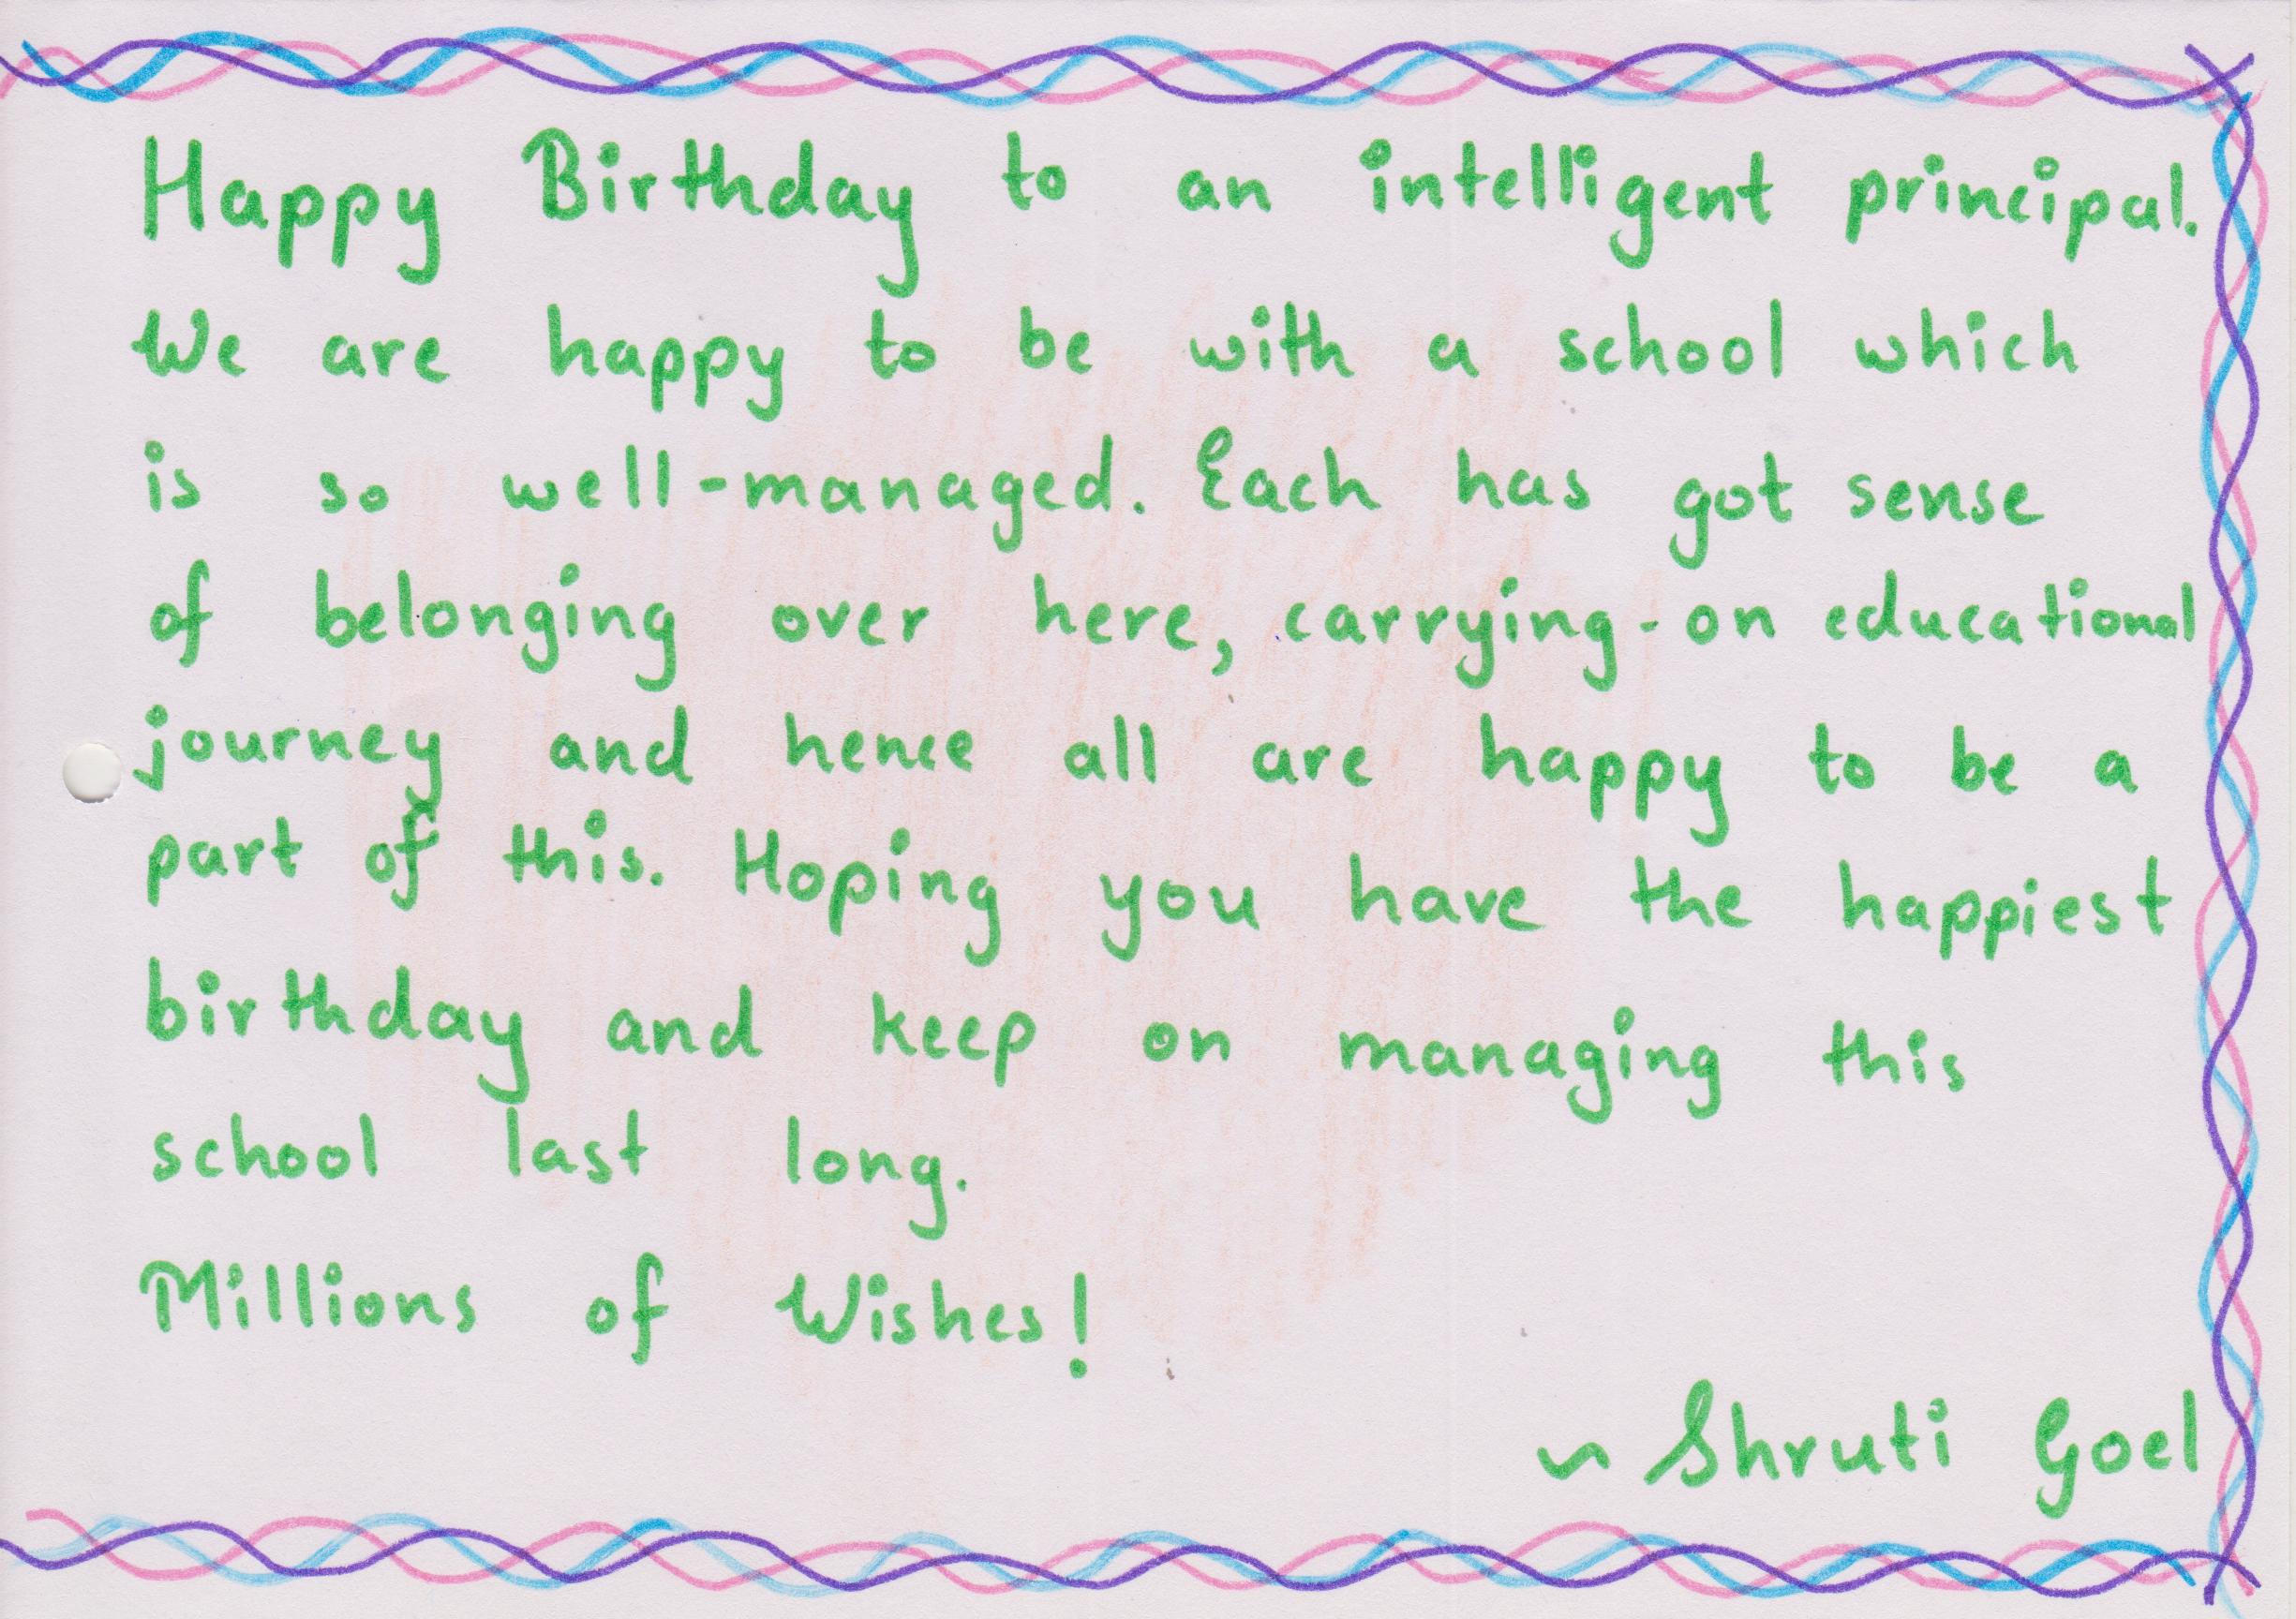 Happy Birthday to an intelligent principal.
We are happy to be with a school which
is so well-managed. Each has got sense
of belonging over here, carrying-on educational
journey and hence all are happy to be a
part of this. Hoping you have the happiest
birthday and keep on managing this
school last long.
Millions of Wishes!
~ Shruti Goel